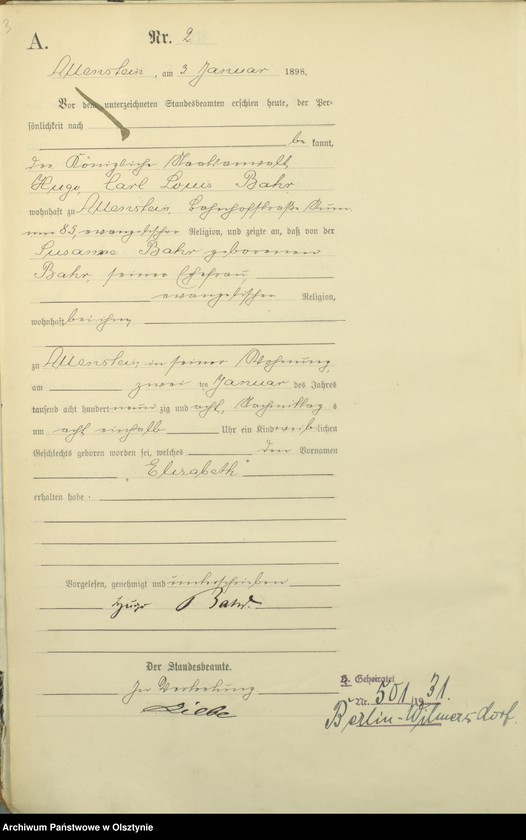 3
A.
Nr. 2
Allenstein, am 3 Januar 1898.
Vor dem unterzeichneten Standesbeamten erschien heute, der Per-
sönlichkeit nach
be kannt,
der Königliche Staatsanwalt
Hugo, Carl Louis Bahr
wohnhaft zu Allenstein, Bahnhofstraße Num-
mer 85, evangelischer Religion, und zeigte an, daß von der
Susanne Bahr geborenen
Bahr, seiner Ehefrau,
evangelischer Religion,
wohnhaft bei ihm
zu Allenstein in seiner Wohnung
am zwei ten Januar des Jahres
tausend acht hundert neun zig und acht, Nachmittag s
um acht einhalb Uhr ein Kind weib lichen
Geschlechts geboren worden sei, welches den Vornamen
"Elisabeth"
erhalten habe.
Vorgelesen, genehmigt und unterschrieben
Hugo Bahr.
Der Standesbeamte.
In Vertretung
Liebe
Geheiratet
Nr. 501/1931.
Berlin-Wilmersdorf.
Archiwum Państwowe w Olsztynie